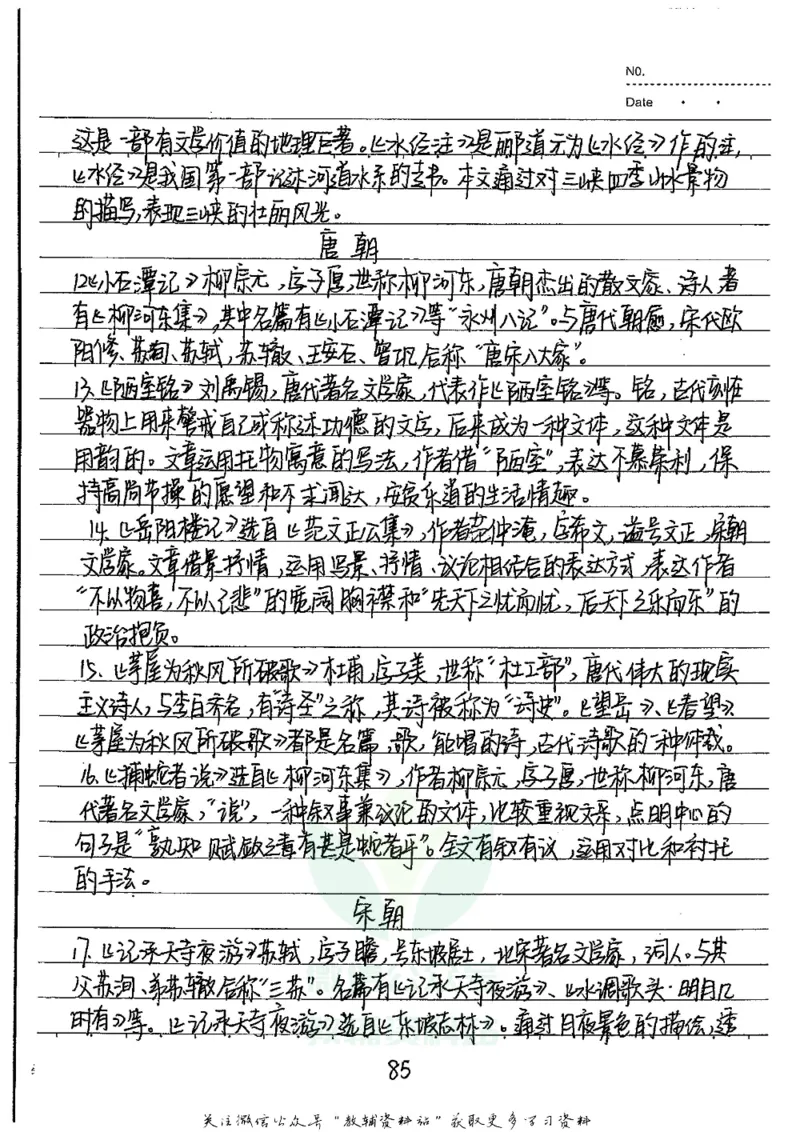 NO.
Date
这是一部有文学价值的地理巨著。《水经注》是郦道元为《水经》作的注,
《水经》是我国第一部记述河道水系的专书。本文通过对三峡四季山水景物
的描写,表现三峡的壮丽风光。
唐朝
12《小石潭记》柳宗元,字子厚,世称柳河东,唐朝杰出的散文家、诗人著
有《柳河东集》,其中名篇有《小石潭记》等“永州八记”。与唐代韩愈,宋代欧
阳修、苏洵、苏轼,苏辙、王安石、曾巩合称“唐宋八大家”。
13.《陋室铭》刘禹锡,唐代著名文学家,代表作《陋室铭》等。铭,古代刻在
器物上用来警戒自己或称述功德的文字,后来成为一种文体,这种文体是
用韵的。文章运用托物寓意的写法,作者借“陋室”,表达不慕荣利,保
持高尚节操的愿望和不求闻达,安贫乐道的生活情趣。
14.《岳阳楼记》选自《范文正公集》,作者范仲淹,字希文,谥号文正,宋朝
文学家。文章借景抒情,运用写景、抒情、议论相结合的表达方式,表达作者
“不以物喜,不以己悲”的宽阔胸襟和“先天下之忧而忧,后天下之乐而乐”的
政治抱负。
15.《茅屋为秋风所破歌》杜甫,字子美,世称“杜工部”,唐代伟大的现实
主义诗人,与李白齐名,有“诗圣”之称,其诗被称为“诗史”。《望岳》、《春望》、
《茅屋为秋风所破歌》都是名篇,歌,能唱的诗,古代诗歌的一种体裁。
16.《捕蛇者说》选自《柳河东集》,作者柳宗元,字子厚,世称柳河东,唐
代著名文学家,“说”,一种叙事兼议论的文体,比较重视文采,点明中心的
句子是“孰知赋敛之毒有甚是蛇者乎”。全文有叙有议,运用对比和衬托
的手法。
宋朝
17.《记承天寺夜游》苏轼,字子瞻,号东坡居士,北宋著名文学家,词人。与其
父苏洵、弟苏辙合称“三苏”。名篇有《记承天寺夜游》、《水调歌头·明月几
时有》等。《记承天寺夜游》选自《东坡志林》。通过月夜景色的描绘,透
85
关注微信公众号“教辅资料站”获取更多学习资料